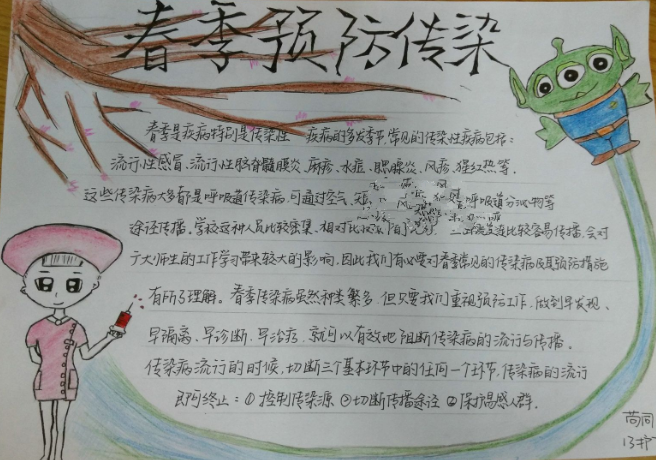 春季预防传染
春季是疾病特别是传染性 疾病的多发季节,常见的传染性疾病包括:
流行性感冒、流行性脑脊髓膜炎、麻疹、水痘、腮腺炎、风疹、猩红热等,
这些传染病大多都是呼吸道传染病,可通过空气、短 呼吸道分泌物等
途径传播,学校这种人员比较密集、相对比较 比较容易传播,会对
广大师生的工作学习带来较大的影响,因此我们有必要对春季常见的传染病及其预防措施
有所了理解。春季传染病虽然种类繁多,但只要我们重视预防工作,做到早发现、
早隔离、早诊断、早治疗,就可以有效地阻断传染病的流行与传播。
传染病流行的时候,切断三个基本环节中的任何一个环节,传染病的流行
即可终止:①控制传染源 ②切断传播途径 ③保护易感人群.
13护